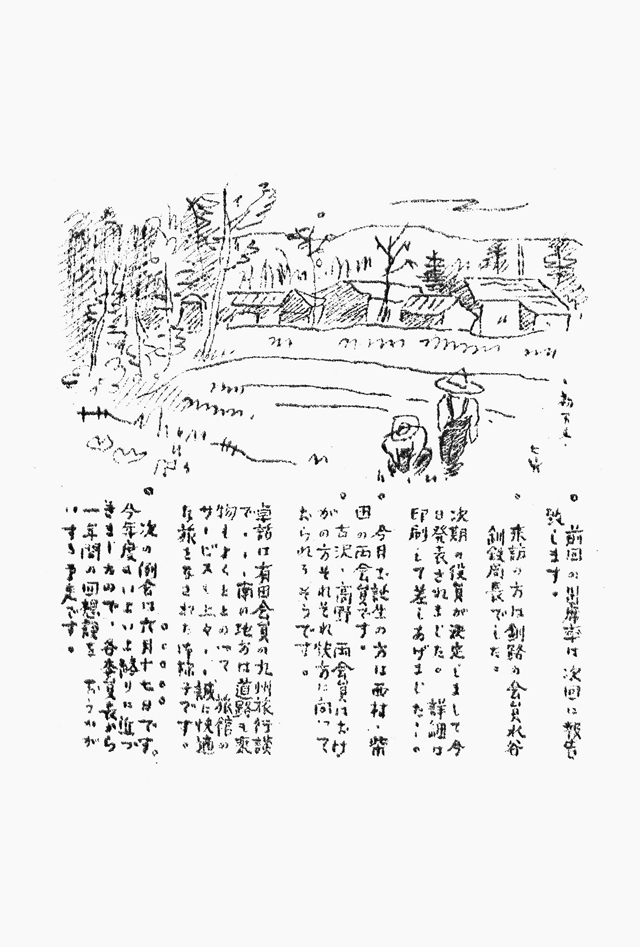 。前回の出席率は次回に報告
致します。
。来訪の方は釧路の会員水谷
でした。
次期の役員が決定しまして今
日発表されました。詳細は
印刷して差しあげました。
。今月お誕生の方は西村、柴
田の両会員です。
。古沢、高野両会員はおけ
がの方それぞれ快方に向って
おられるそうです。
卓話は有田会員の九州旅行談
で、、南の地方は道路も家
物もよくととのって旅館の
サービスも上々、、誠に快適
な旅をなされた御様子です。
。次の例会は六月十七日です。
今年度もいよいよ終りに近づ
きましたので、各委員長から
一年間の回想談を おうかが
いする予定です。